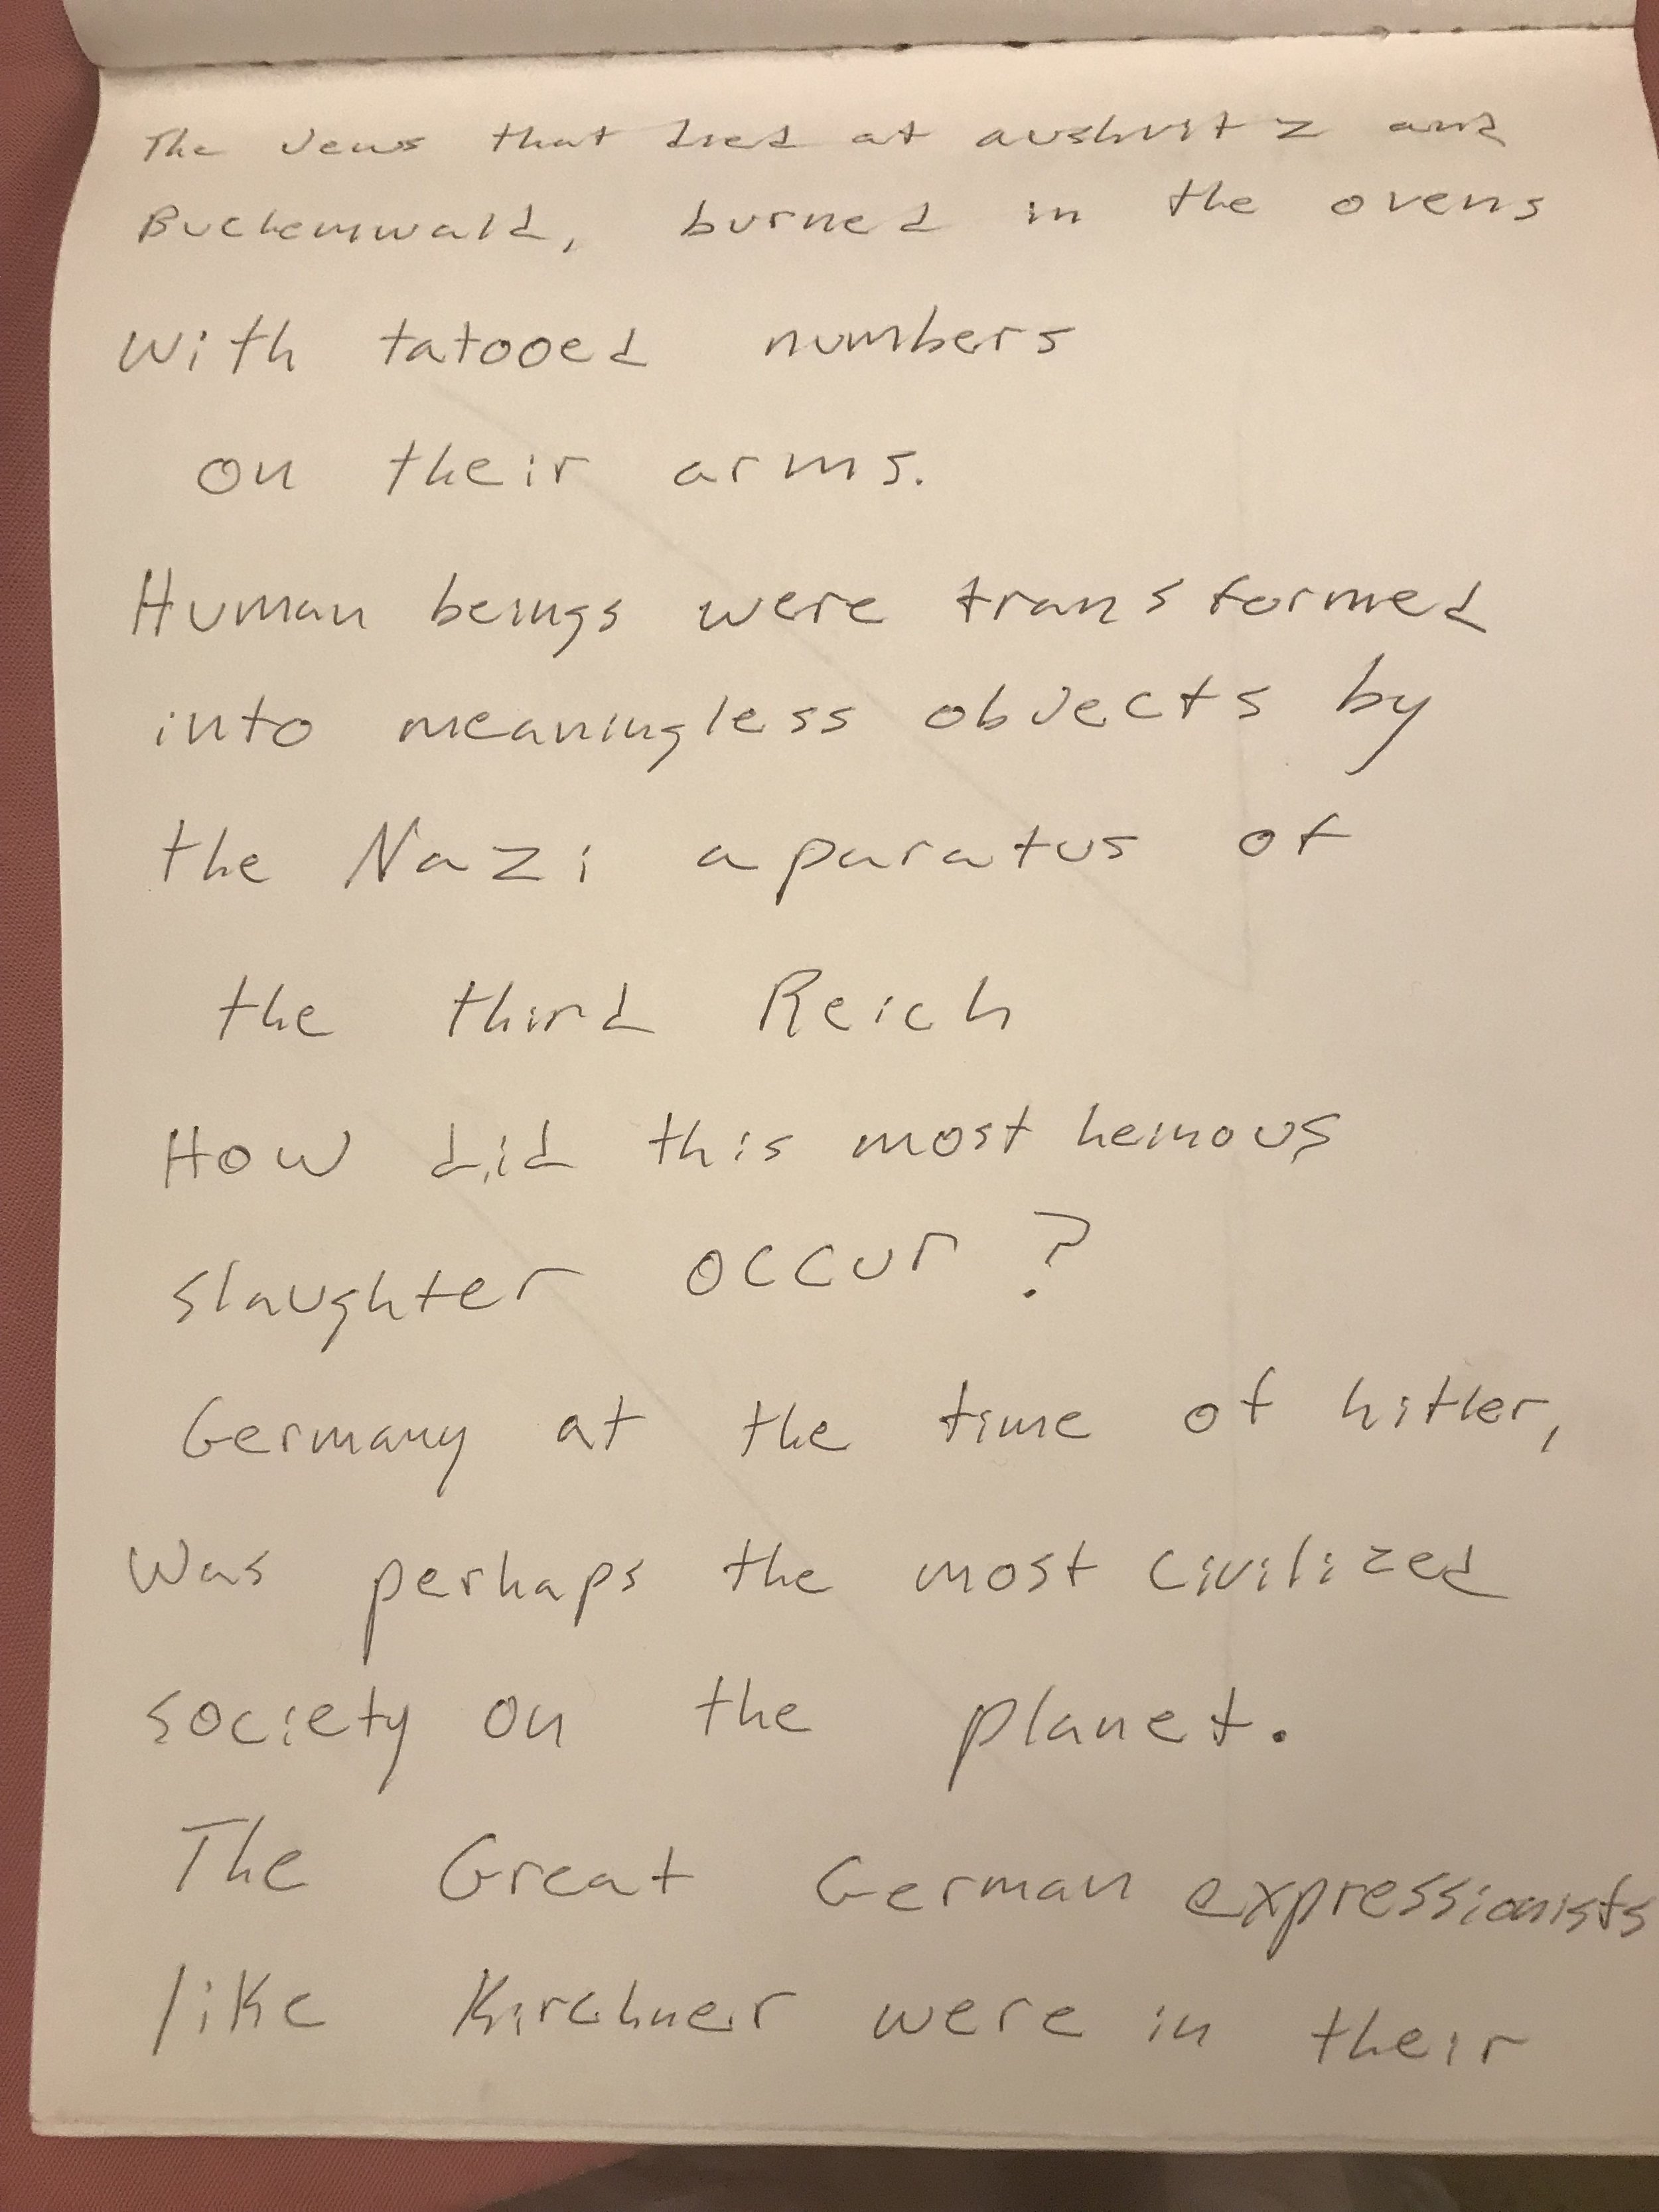 The Jews that died at aushvitz and
Buchemwald, burned in the ovens
with tatooed numbers
on their arms.
Human beings were transformed
into meaningless objects by
the Nazi aparatus of
the third Reich
How did this most heinous
slaughter occur?
Germany at the time of hitler,
was perhaps the most civilized
society on the planet.
The Great German expressionists
like Kirchner were in their